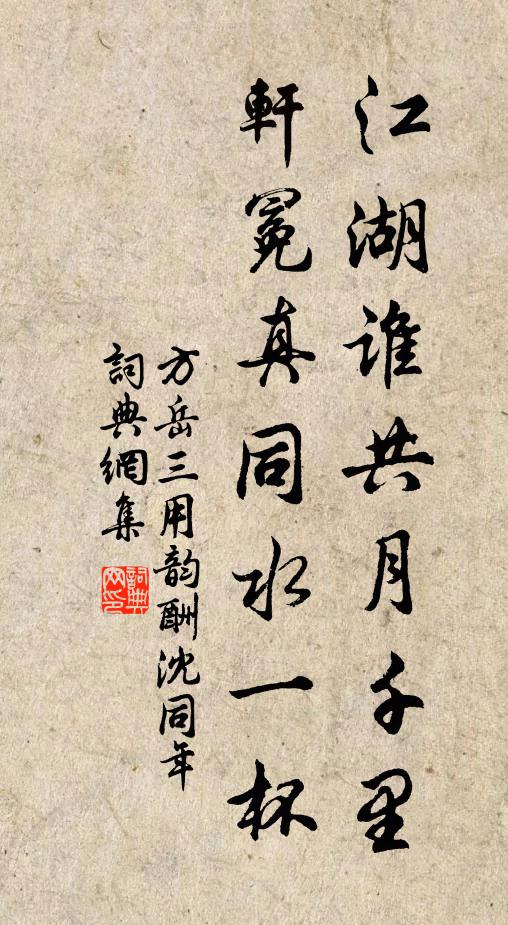 江湖誰共月千里
軒冕真同水一杯
方岳三用韵酬沈同年
詞典網集
詞典網印